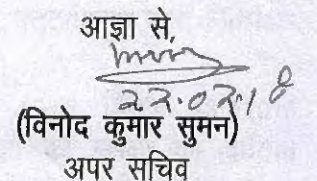 आज्ञा से,
22.02.18
(विनोद कुमार सुमन)
अपर सचिव